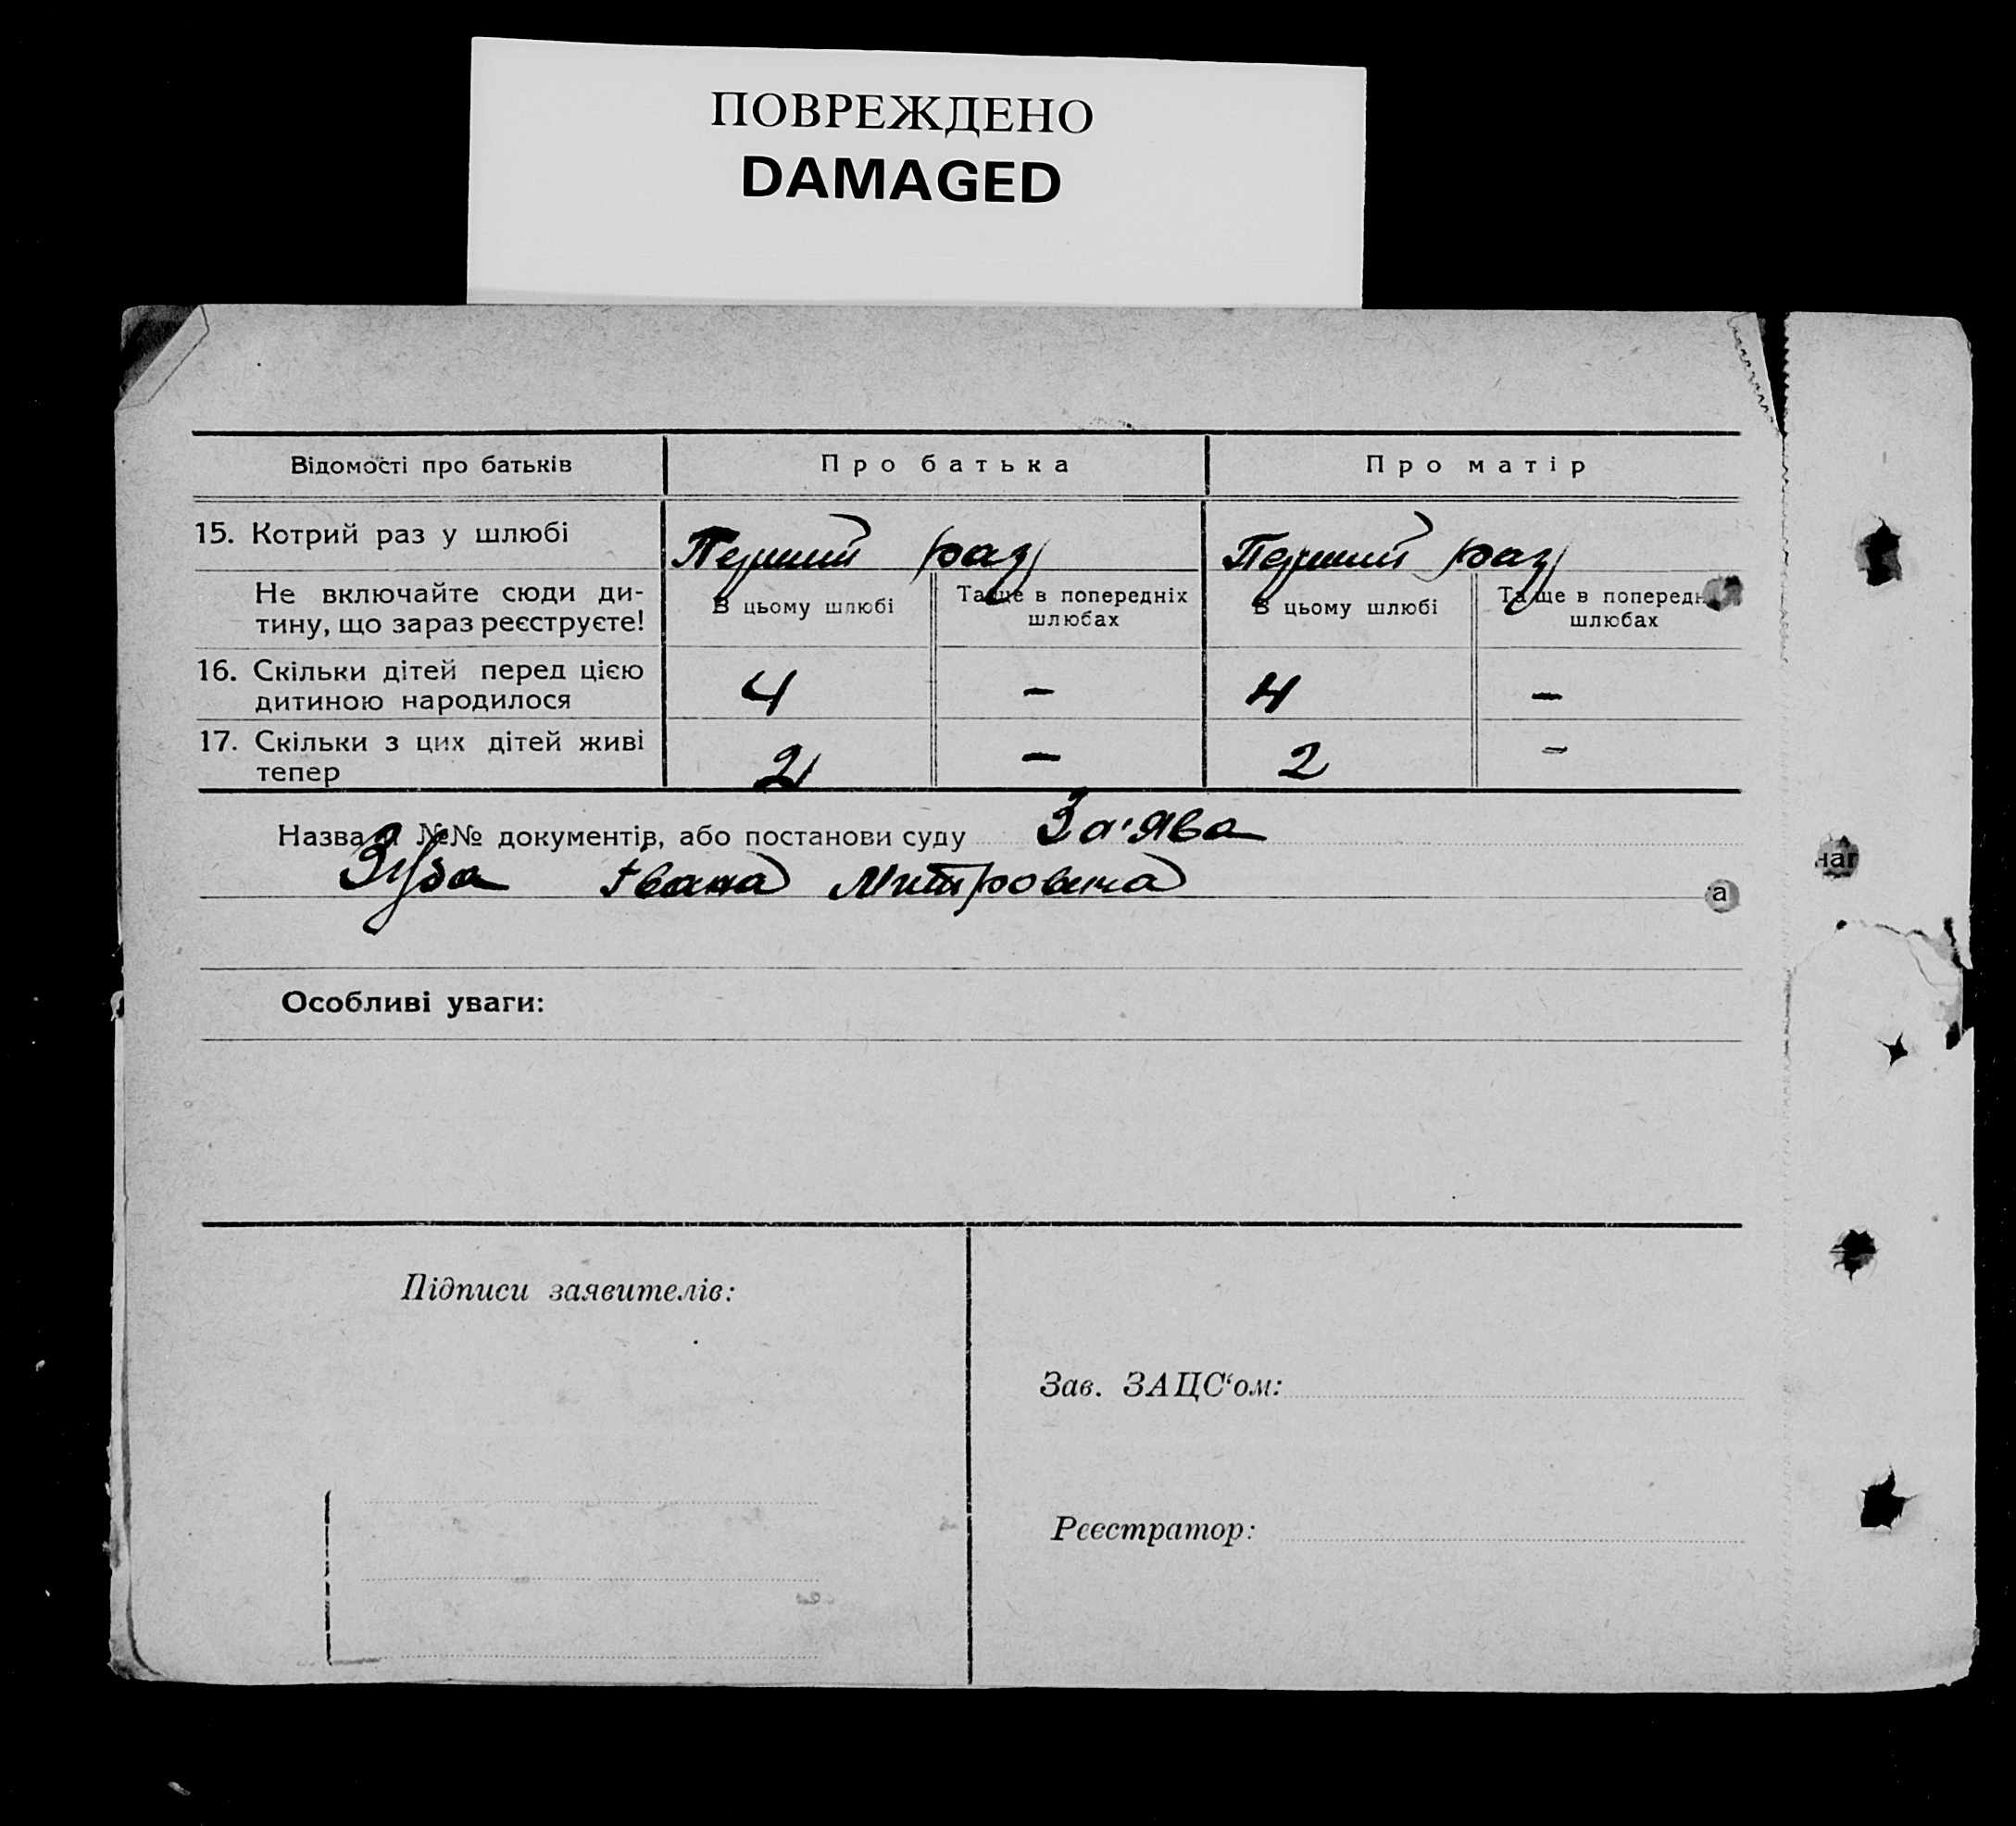 ПОВРЕЖДЕНО
DAMAGED
Відомості про батьків Про батька Про матір
15. Котрий раз у шлюбі Перший раз Перший раз
Не включайте сюди ди-
тину, що зараз реєструєте!
В цьому шлюбі Та ще в попередніх шлюбах В цьому шлюбі Та ще в попередн
шлюбах
16. Скільки дітей перед цією
дитиною народилося 4 – 4 –
17. Скільки з цих дітей живі
тепер 2 – 2 –
Назва й №№ документів, або постанови суду За'ява
Зуба Івана Митровича
наг
а
Особливі уваги:
Підписи заявителів:
Зав. ЗАЦС‘ом:
Реєстратор: